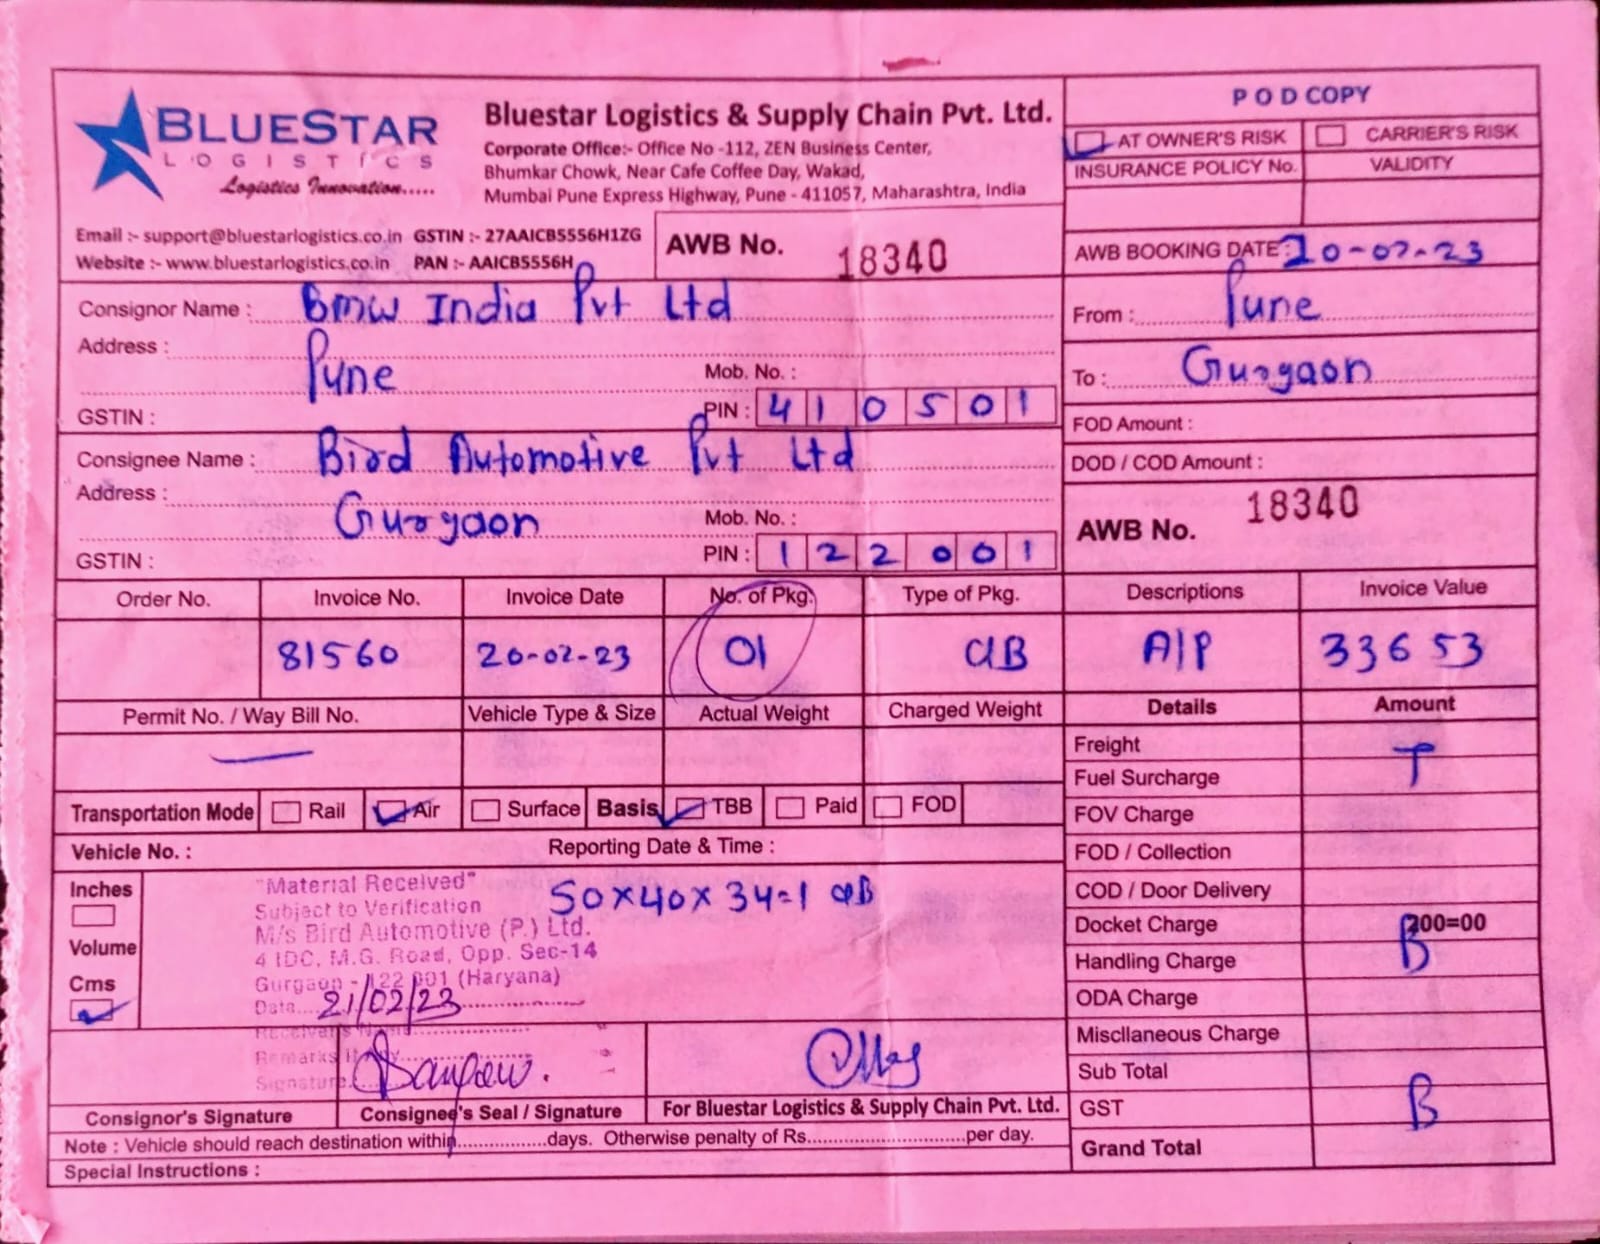 BLUESTAR
LOGISTICS
Logistics Innovation.....
Bluestar Logistics & Supply Chain Pvt. Ltd.
Corporate Office:- Office No -112, ZEN Business Center,
Bhumkar Chowk, Near Cafe Coffee Day, Wakad,
Mumbai Pune Express Highway, Pune - 411057, Maharashtra, India
POD COPY
AT OWNER'S RISK CARRIER'S RISK
INSURANCE POLICY No. VALIDITY
Email :- support@bluestarlogistics.co.in GSTIN :- 27AAICB5556H1ZG
Website :- www.bluestarlogistics.co.in PAN :- AAICB5556H
AWB No. 18340
AWB BOOKING DATE: 20-02-23
Consignor Name : Bmw India Pvt Ltd
Address :
Pune
Mob. No. :
GSTIN :
PIN : 410501
From : Pune
To : Gurgaon
FOD Amount :
DOD / COD Amount :
Consignee Name : Bird Automotive Pvt Ltd
Address :
Gurgaon
Mob. No. :
GSTIN :
PIN : 122001
AWB No. 18340
Order No. Invoice No. Invoice Date No. of Pkg. Type of Pkg. Descriptions Invoice Value
81560 20-02-23 01 CIB A/P 33653
Permit No. / Way Bill No. Vehicle Type & Size Actual Weight Charged Weight Details Amount
—
Transportation Mode Rail Air Surface Basis TBB Paid FOD
Vehicle No. : Reporting Date & Time :
Inches
Volume
Cms
50x40x34=1 CIB
"Material Received"
Subject to Verification
M/s Bird Automotive (P.) Ltd.
4 IDC, M.G. Road, Opp. Sec-14
Gurgaon - 122 001 (Haryana)
Date....21/02/23
Receiver's Name
Remarks
Signature
Consignor's Signature Consignee's Seal / Signature For Bluestar Logistics & Supply Chain Pvt. Ltd.
Note : Vehicle should reach destination within.................days. Otherwise penalty of Rs..............................per day.
Special Instructions :
Freight T
Fuel Surcharge
FOV Charge
FOD / Collection
COD / Door Delivery
Docket Charge 200=00
Handling Charge B
ODA Charge
Miscllaneous Charge
Sub Total
GST B
Grand Total